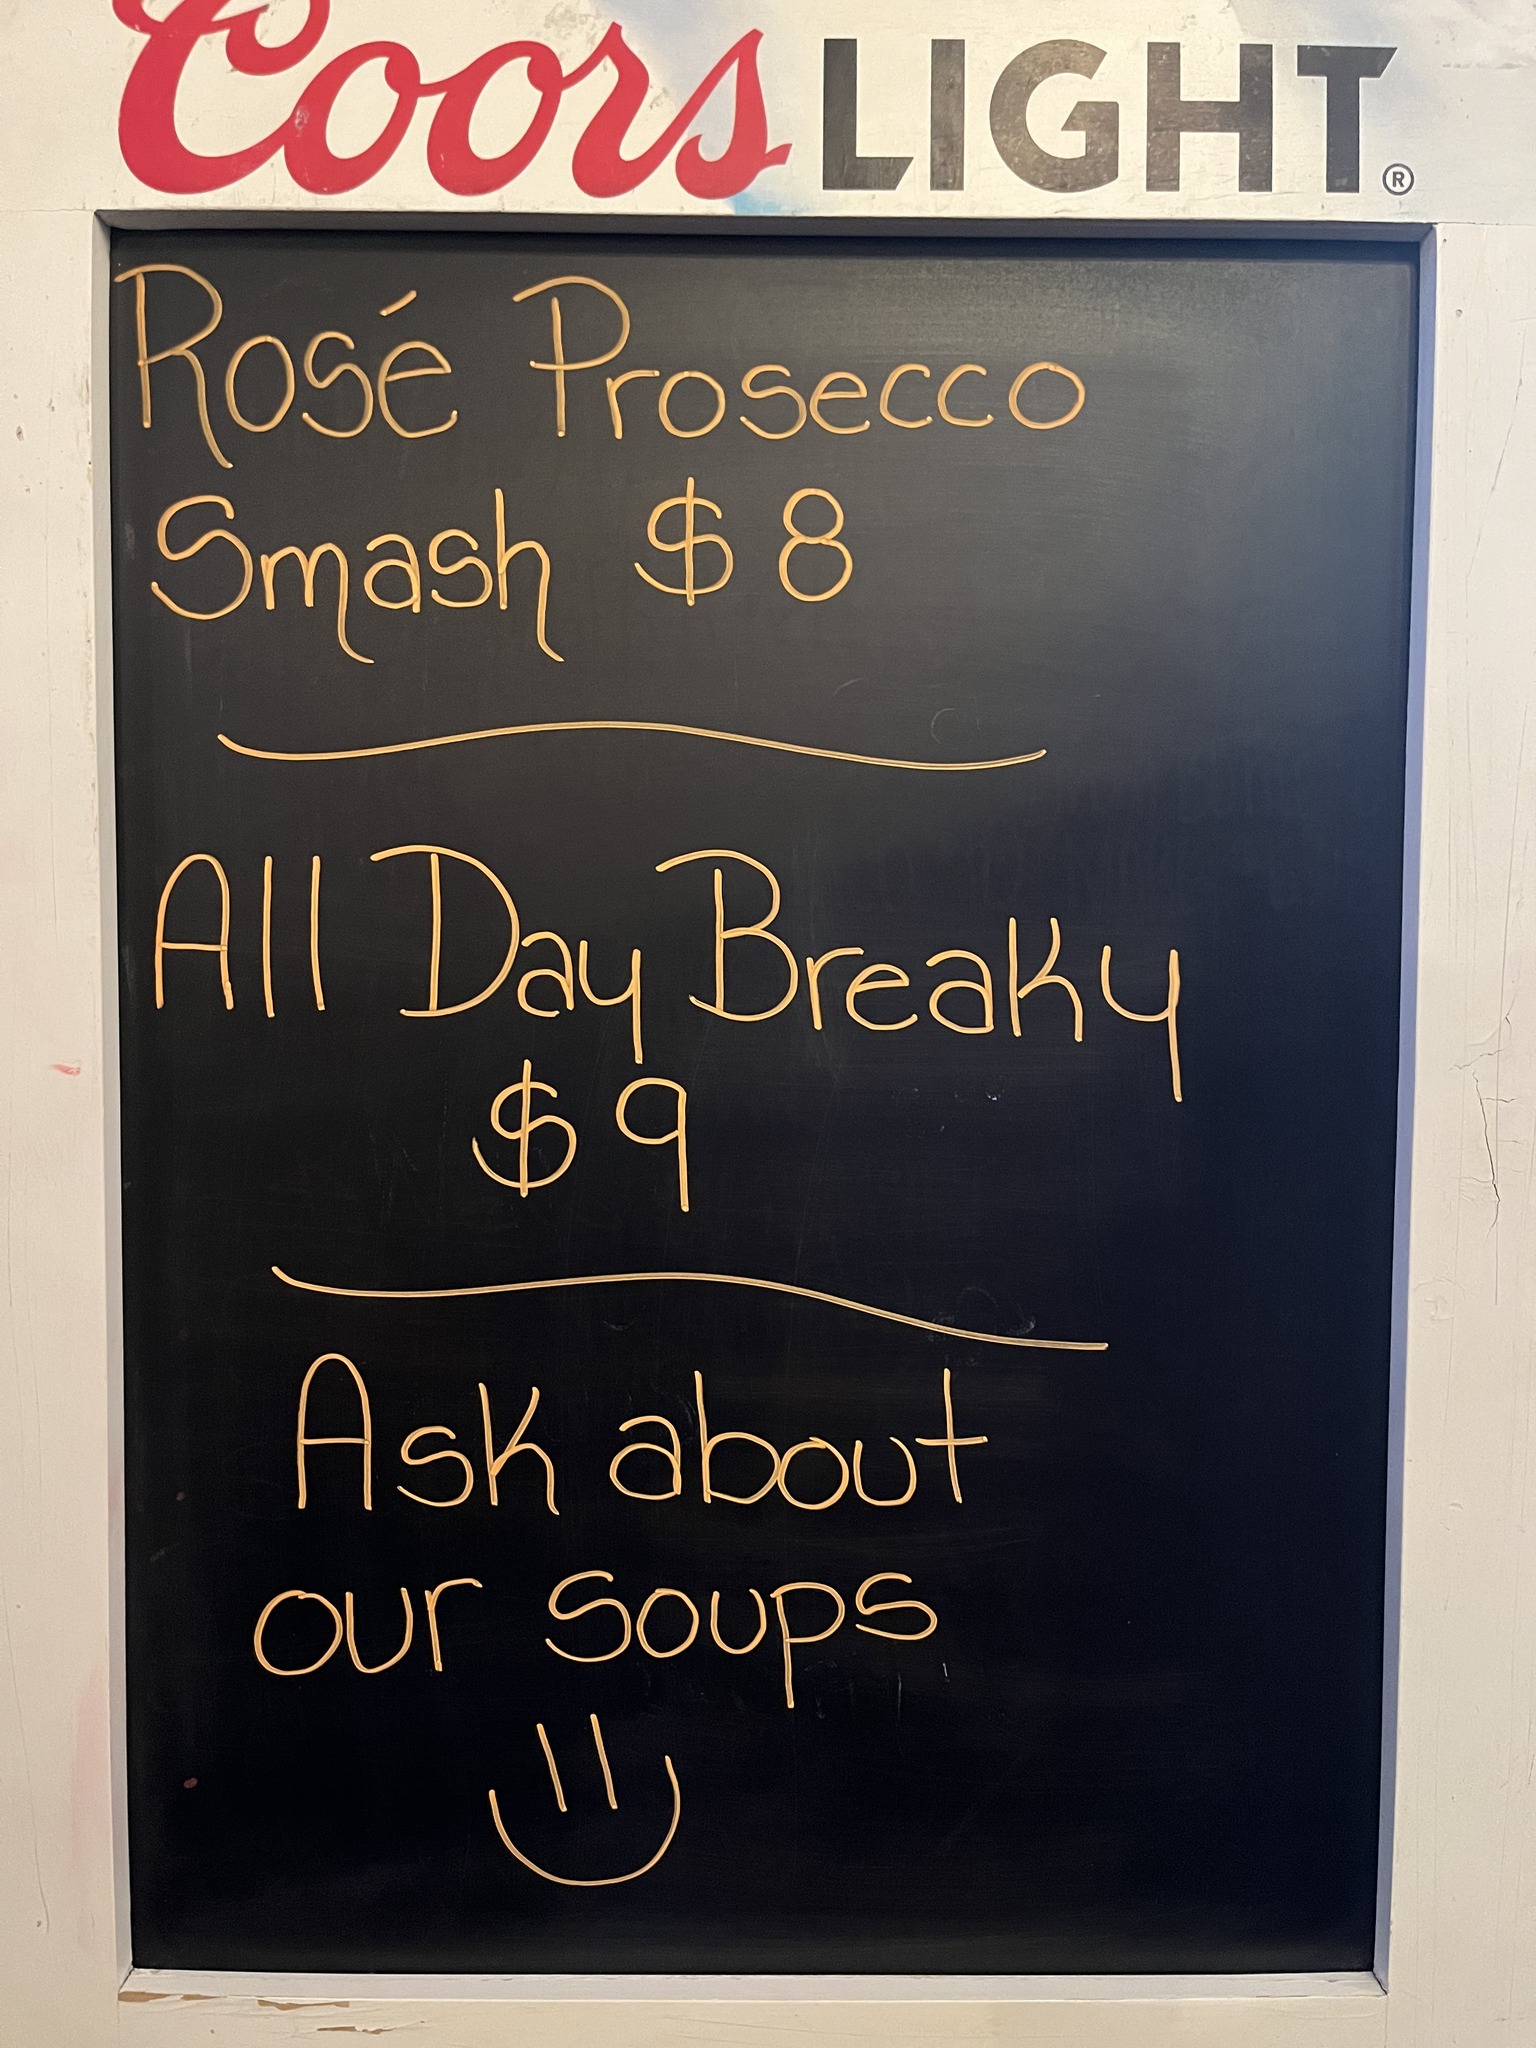 Coors LIGHT®
Rosé Prosecco
Smash $8
All Day Breaky
$9
Ask about
our soups